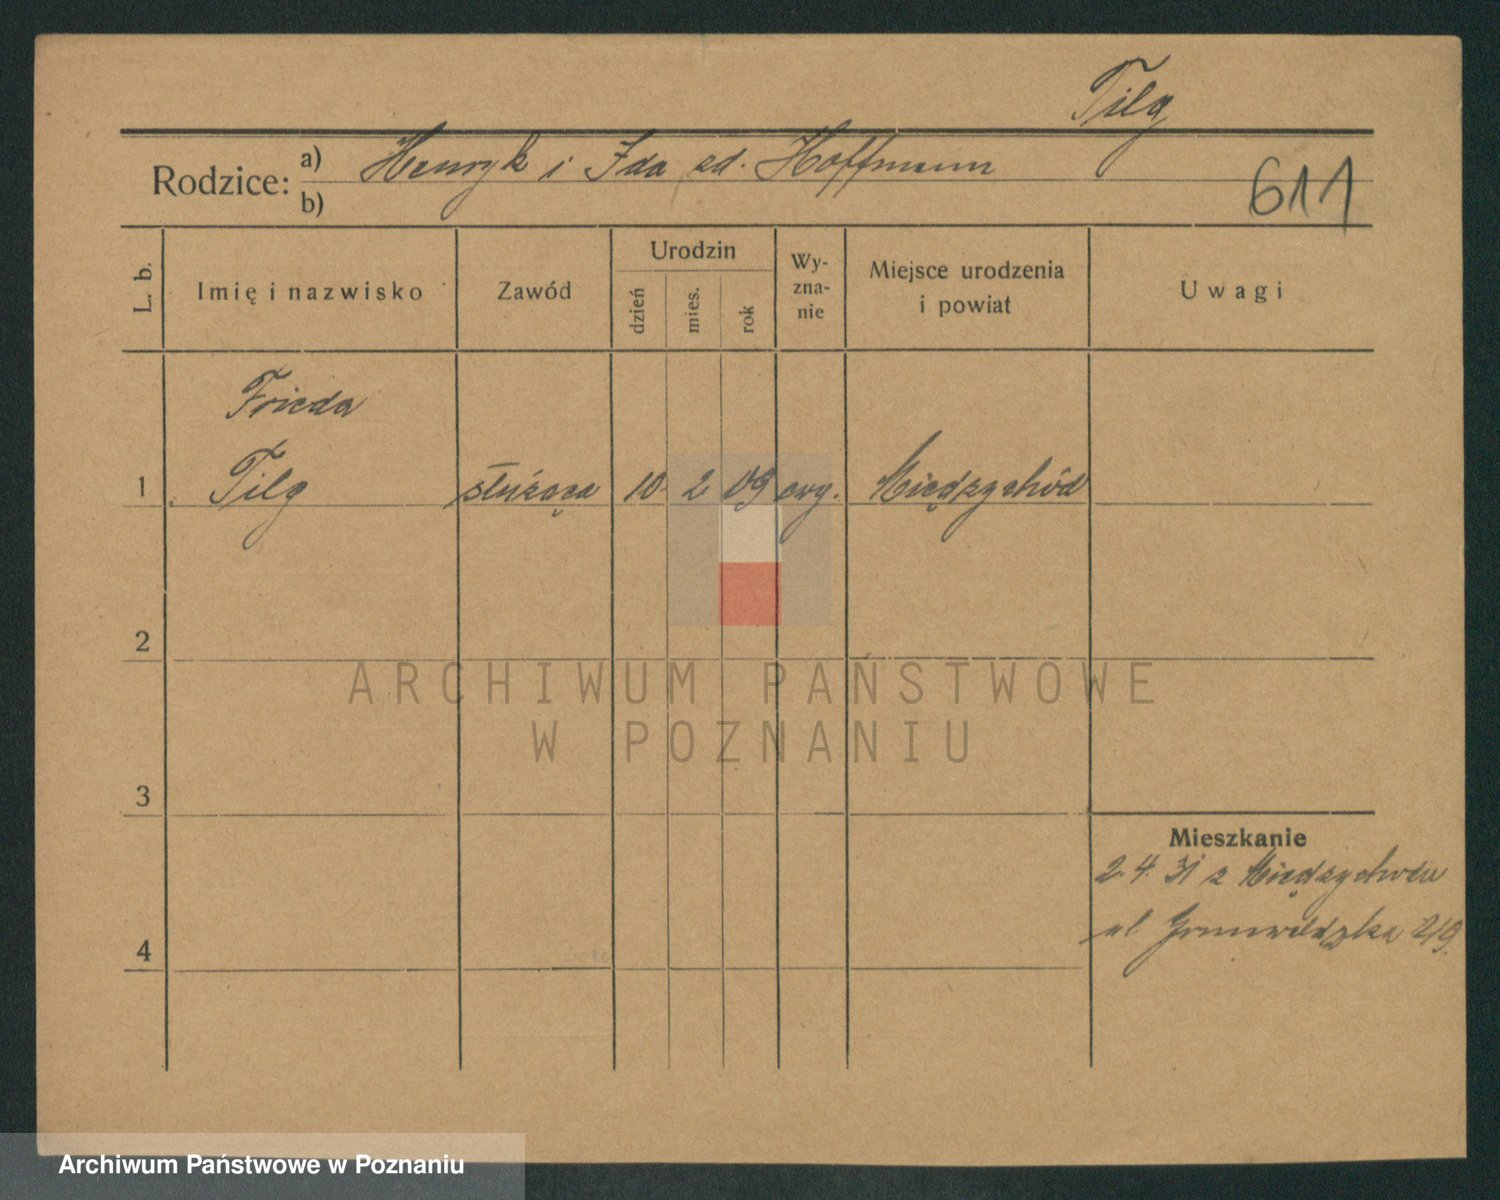 Tilg
Rodzice: a) Henryk i Ida zd. Hoffmann
b)
611
L. b.
Imię i nazwisko
Zawód
Urodzin
dzień
mies.
rok
Wy-
zna-
nie
Miejsce urodzenia
i powiat
Uwagi
Frieda
1 Tilg służąca 10 2 09 ewg. Międzychód
2
ARCHIWUM PAŃSTWOWE
W POZNANIU
3
Mieszkanie
2. 4. 31 z Międzychodu
ul Grunwaldzka
4
Archiwum Państwowe w Poznaniu